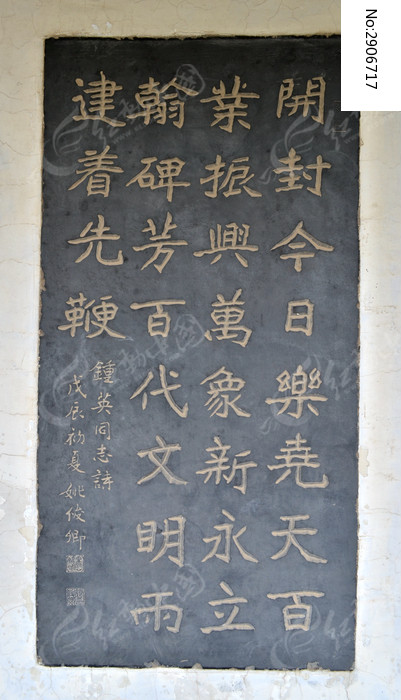 No:2906717
開封今日樂堯天百
業振興萬象新永立
翰碑芳百代文明兩
建着先鞭
鍾英同志詩
戊辰初夏姚俊卿